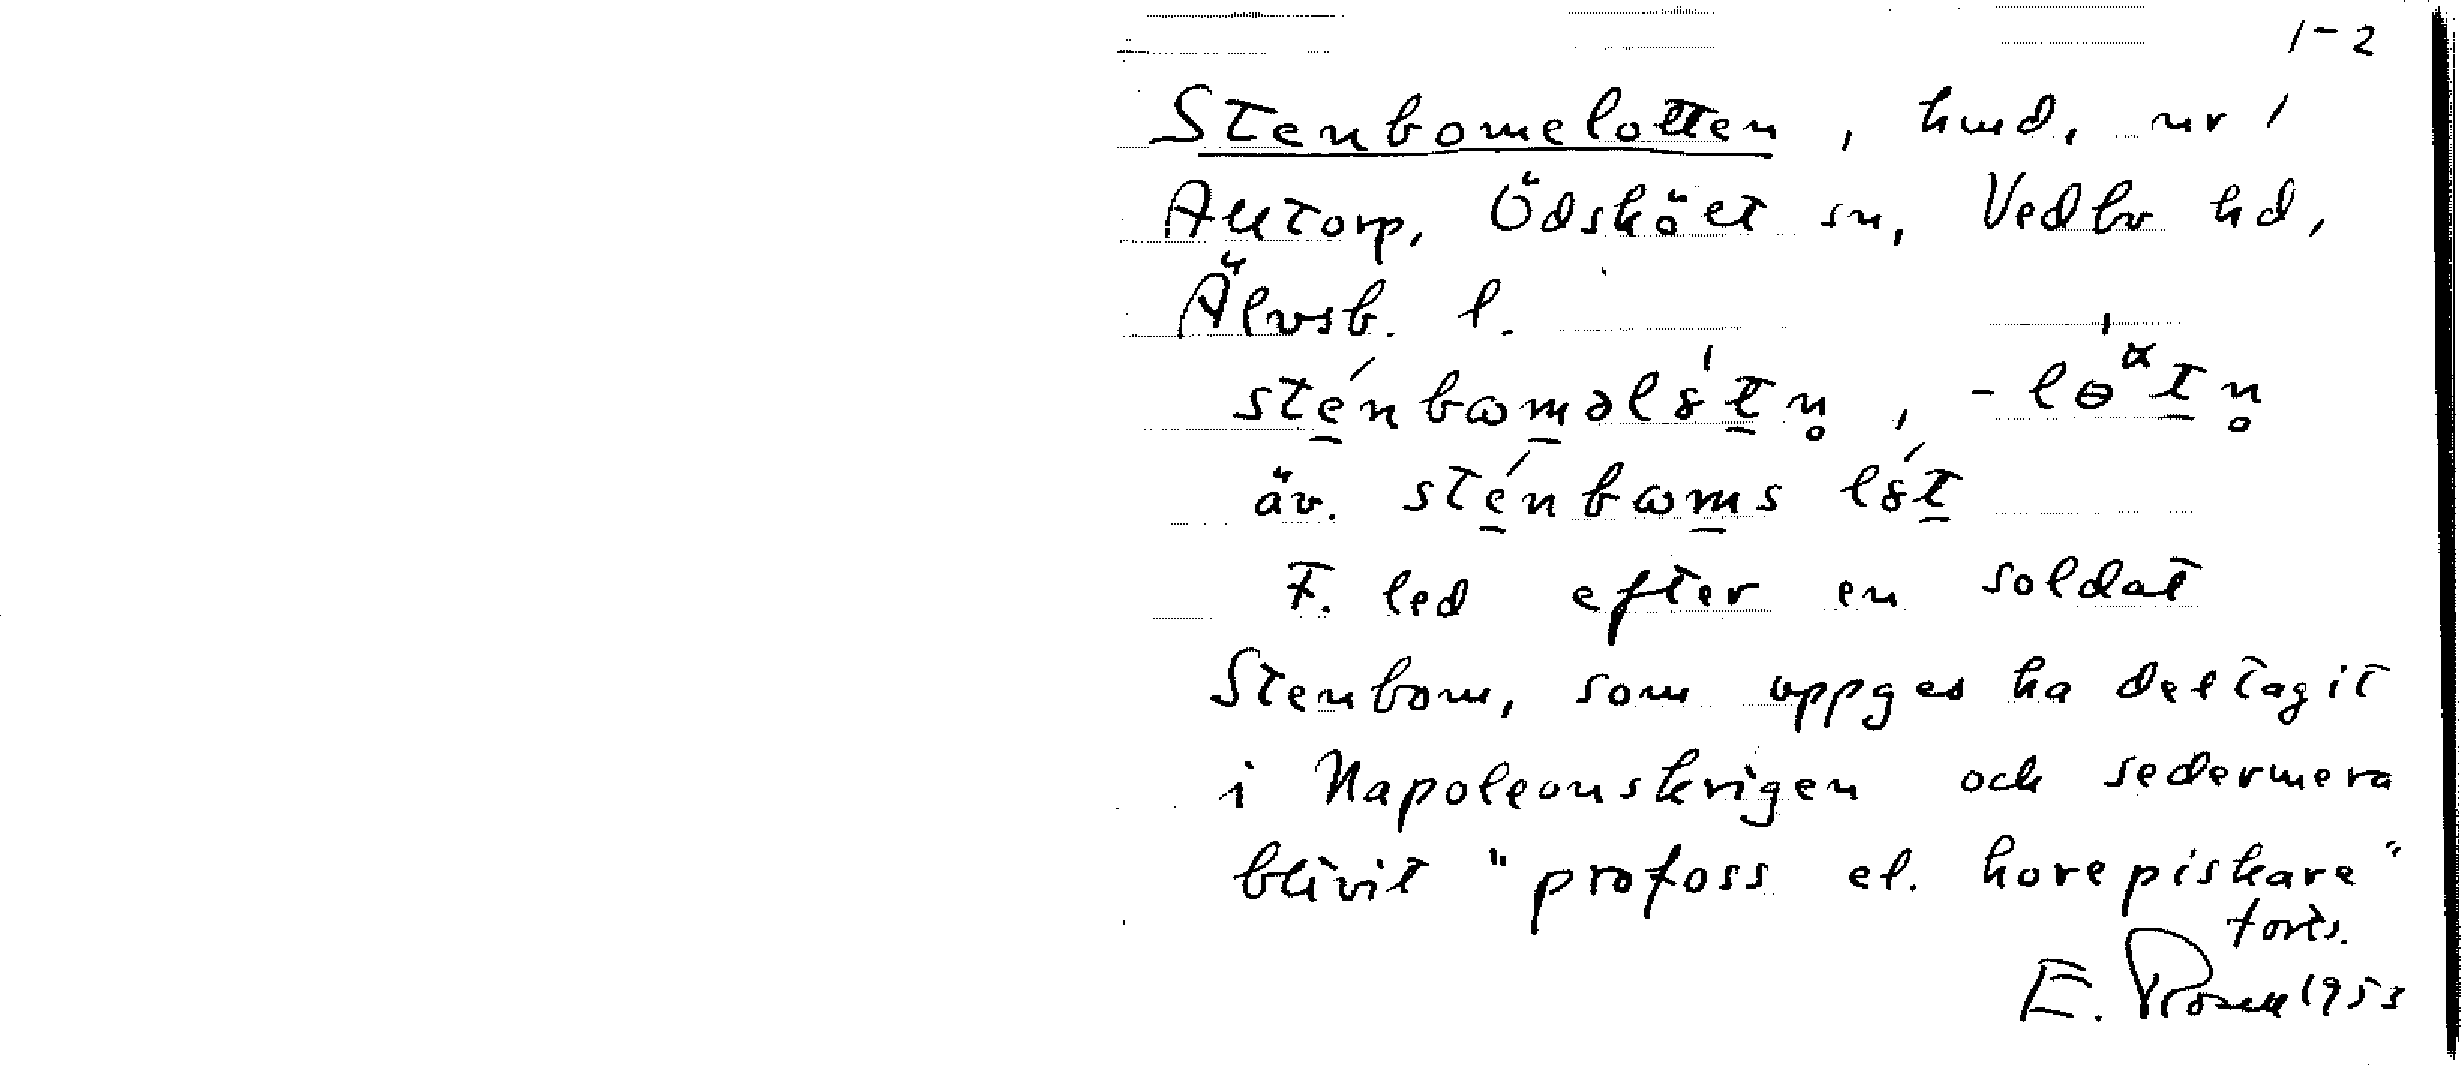 1-2
Stenbomelotten, hmd. nr 1
Alltorp, Ödsköłt sn, Vedbo hd,
Älvsb. l.
sténbɷməl8́tn̥, -lɵ́ᵅtn̥
äv. sténbɷms l8́t
F. led efter en soldat
Stenbom, som uppges ha deltagit
i Napoleonskrigen och sedermera
blivit "profoss el. horepiskare"
forts.
E. Rosell 1953